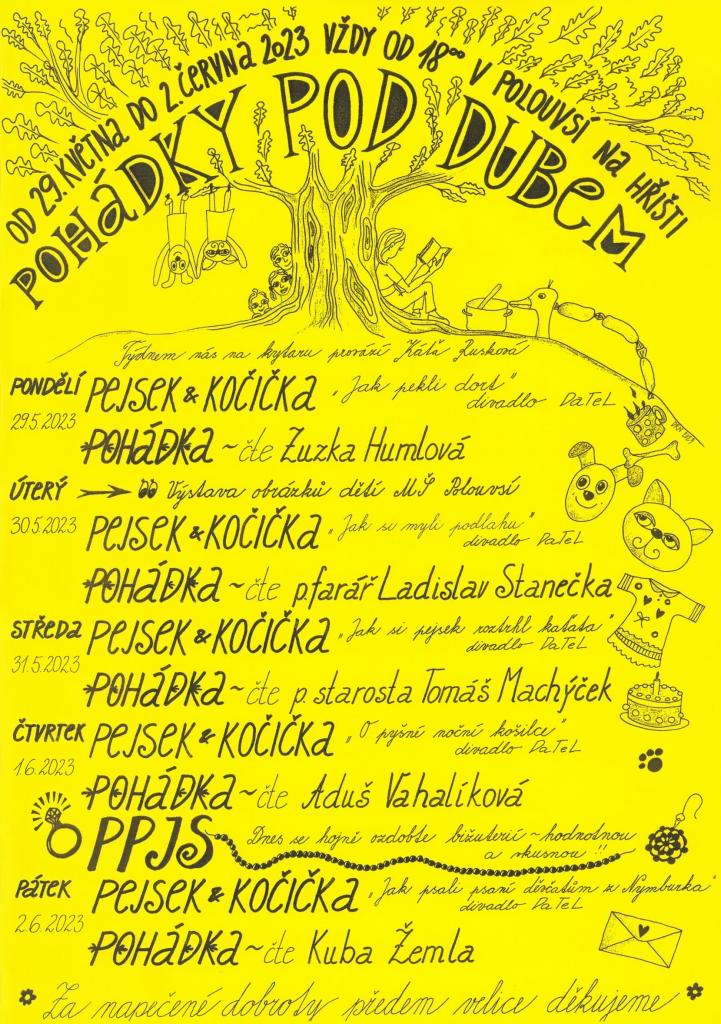 OD 29. KVĚTNA DO 2. ČERVNA 2023 VŽDY OD 18⁰⁰ V POLOUVSÍ NA HŘIŠTI
POHÁDKY POD DUBEM
Týdnem nás na kytaru provází Káťa Rusková
PONDĚLÍ PEJSEK & KOČIČKA „Jak pekli dort"
29.5.2023 divadlo DaTeL
POHÁDKA ~ čte Zuzka Humlová
ÚTERÝ Výstava obrázků dětí MŠ Polouvsí
30.5.2023 PEJSEK & KOČIČKA „Jak si myli podlahu"
divadlo DaTeL
POHÁDKA ~ čte p.farář Ladislav Stanečka
STŘEDA PEJSEK & KOČIČKA „Jak si pejsek roztrhl kaťata"
31.5.2023 divadlo DaTeL
POHÁDKA ~ čte p. starosta Tomáš Machýček
ČTVRTEK PEJSEK & KOČIČKA „O pyšné noční košilce"
1.6.2023 divadlo DaTeL
POHÁDKA ~ čte Aduš Vahalíková
PPJS Dnes se hojně ozdobte bižuterií ~ hodnotnou
a vkusnou !!
PÁTEK PEJSEK & KOČIČKA „Jak psali psaní děvčatům z Nymburka"
2.6.2023 divadlo DaTeL
POHÁDKA ~ čte Kuba Žemla
Za napečené dobroty předem velice děkujeme